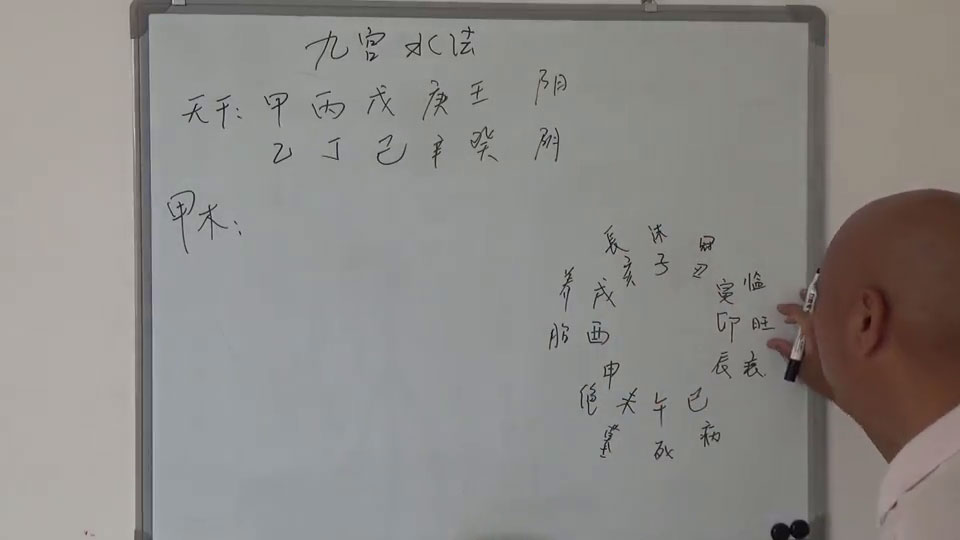 九宫水法
天干: 甲 丙 戊 庚 壬 阳
乙 丁 己 辛 癸 阴
甲木:
長 沐 冠
亥 子 丑
养 戌 寅 临
胎 酉 卯 旺
申 辰 衰
绝 未 午 巳
墓 死 病